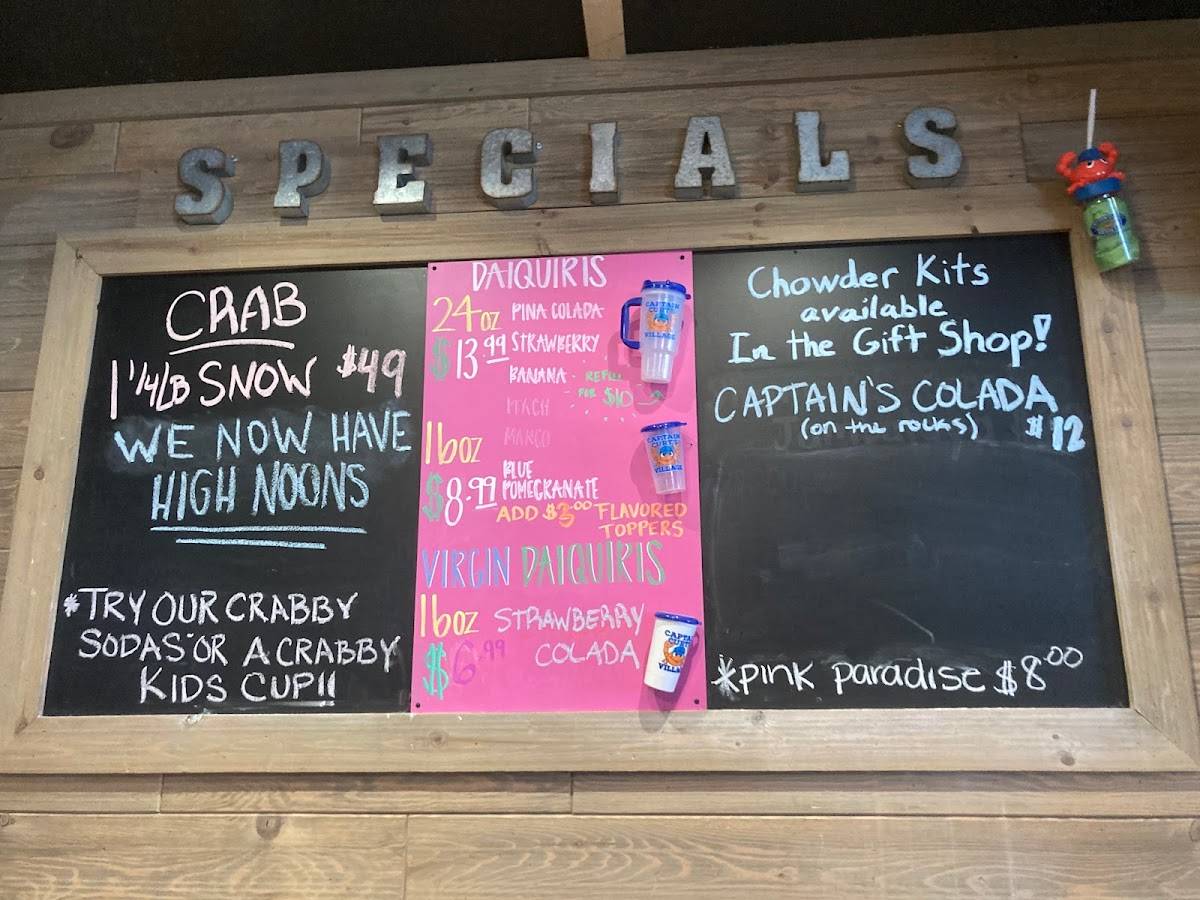 SPECIALS
CRAB
1 1/4LB SNOW $49
WE NOW HAVE
HIGH NOONS
*TRY OUR CRABBY
SODAS OR A CRABBY
KIDS CUP!!
DAIQUIRIS
24oz
$13.99
PINA COLADA
STRAWBERRY
BANANA
REFILL
FOR $10
PEACH
MANGO
BLUE
POMEGRANATE
16oz
$8.99
ADD $3.00 FLAVORED
TOPPERS
VIRGIN DAIQUIRIS
16oz STRAWBERRY
$6.99 COLADA
CAPTAIN
CURT'S
VILLAGE
CAPTAIN
CURT'S
VILLAGE
CAPTA
CURT'
VILLA
Chowder Kits
available
In the Gift Shop!
CAPTAIN'S COLADA
(on the rocks) $12
*pink paradise $8.00